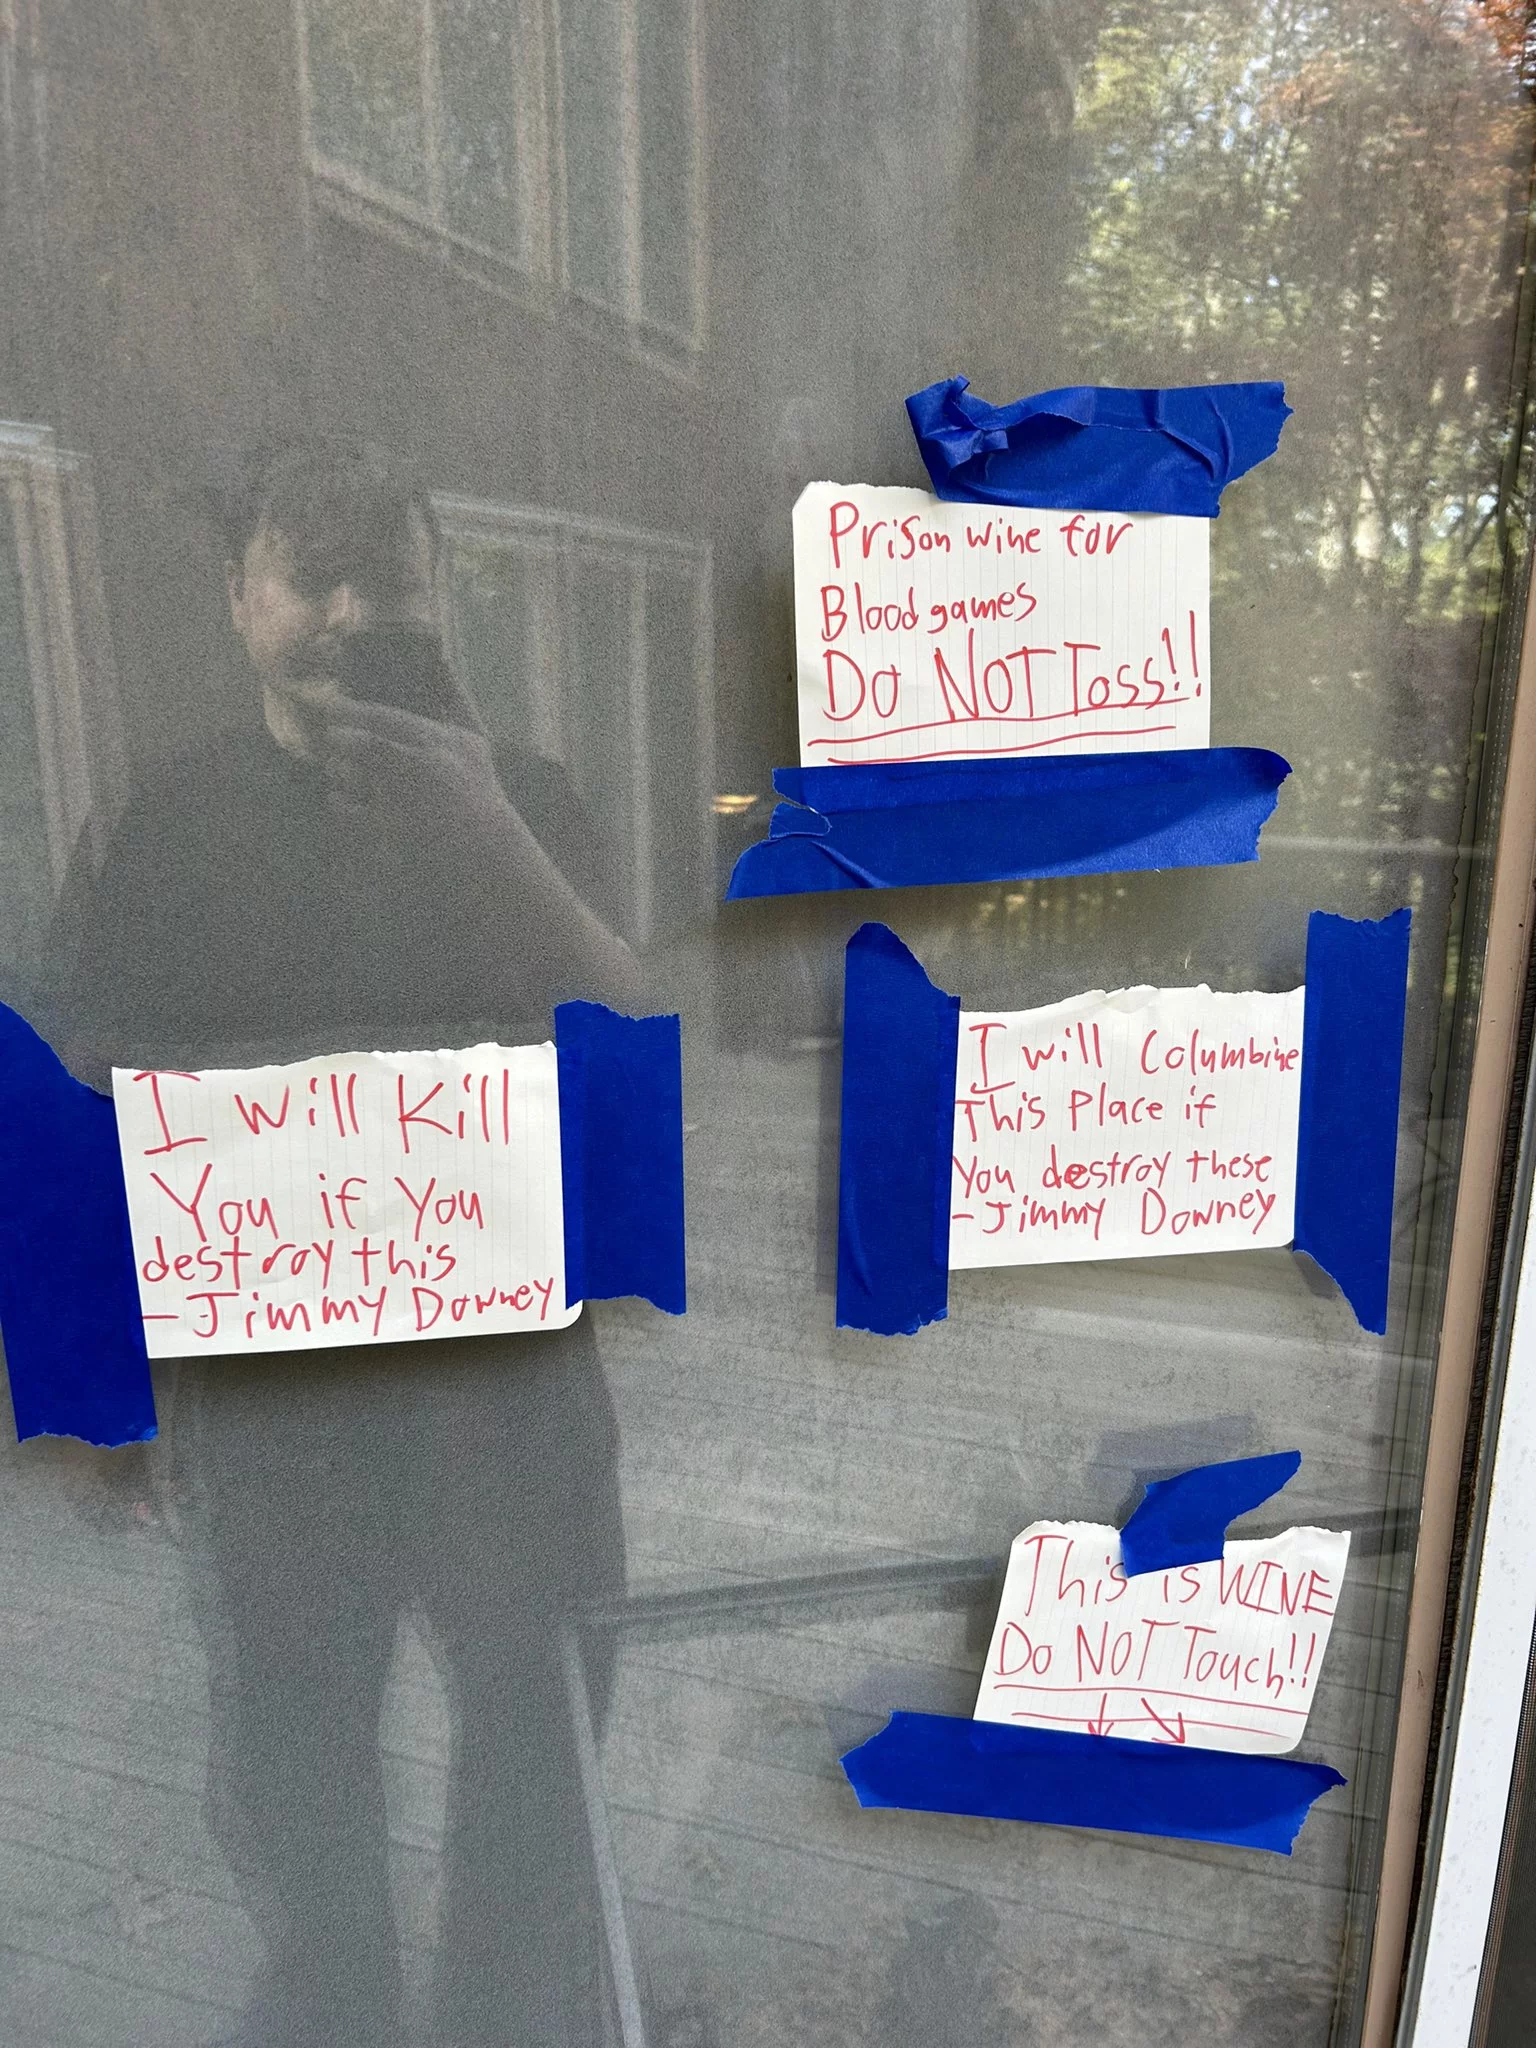 Prison wine for
Blood games
DO NOT Toss!!
I will Kill
You if You
destroy this
-Jimmy Downey
I will Columbine
This Place if
You destroy these
-Jimmy Downey
This is WINE
Do NOT Touch!!